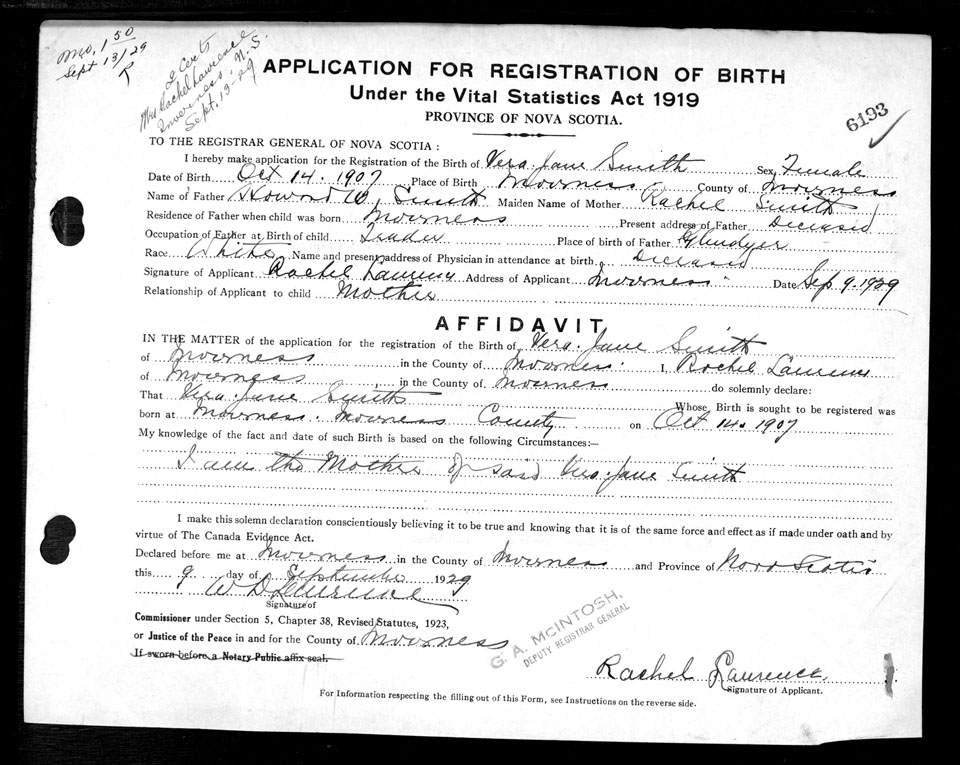 Mo. 1 50
Sept 13/29
R
2 Certs
Mrs Rachel Lawrence
Inverness. N.S.
Sept. 19-29
APPLICATION FOR REGISTRATION OF BIRTH
Under the Vital Statistics Act 1919
PROVINCE OF NOVA SCOTIA.
6193
TO THE REGISTRAR GENERAL OF NOVA SCOTIA:
I hereby make application for the Registration of the Birth of Vera Jane Smith Sex Female
Date of Birth Oct 14. 1907 Place of Birth Inverness County of Inverness
Name of Father Howard W. Smith Maiden Name of Mother Rachel Smith
Residence of Father when child was born Inverness Present address of Father Deceased
Occupation of Father at Birth of child Trader Place of birth of Father Glendyer
Race White Name and present address of Physician in attendance at birth Deceased
Signature of Applicant Rachel Laurence Address of Applicant Inverness Date Sep. 9. 1929
Relationship of Applicant to child Mother
AFFIDAVIT
IN THE MATTER of the application for the registration of the Birth of Vera Jane Smith
of Inverness in the County of Inverness I, Rachel Laurence
of Inverness in the County of Inverness do solemnly declare:
That Vera Jane Smith Whose Birth is sought to be registered was
born at Inverness. Inverness County on Oct 14. 1907
My knowledge of the fact and date of such Birth is based on the following Circumstances:—
I am the Mother of said Vera Jane Smith
I make this solemn declaration conscientiously believing it to be true and knowing that it is of the same force and effect as if made under oath and by
virtue of The Canada Evidence Act.
Declared before me at Inverness in the County of Inverness and Province of Nova Scotia
this 9 day of September 1929
W D Laurence
Signature of
Commissioner under Section 5, Chapter 38, Revised Statutes, 1923,
or Justice of the Peace in and for the County of Inverness
If sworn before a Notary Public affix seal.
G. A. McINTOSH,
DEPUTY REGISTRAR GENERAL
Rachel Laurence
Signature of Applicant.
For Information respecting the filling out of this Form, see Instructions on the reverse side.